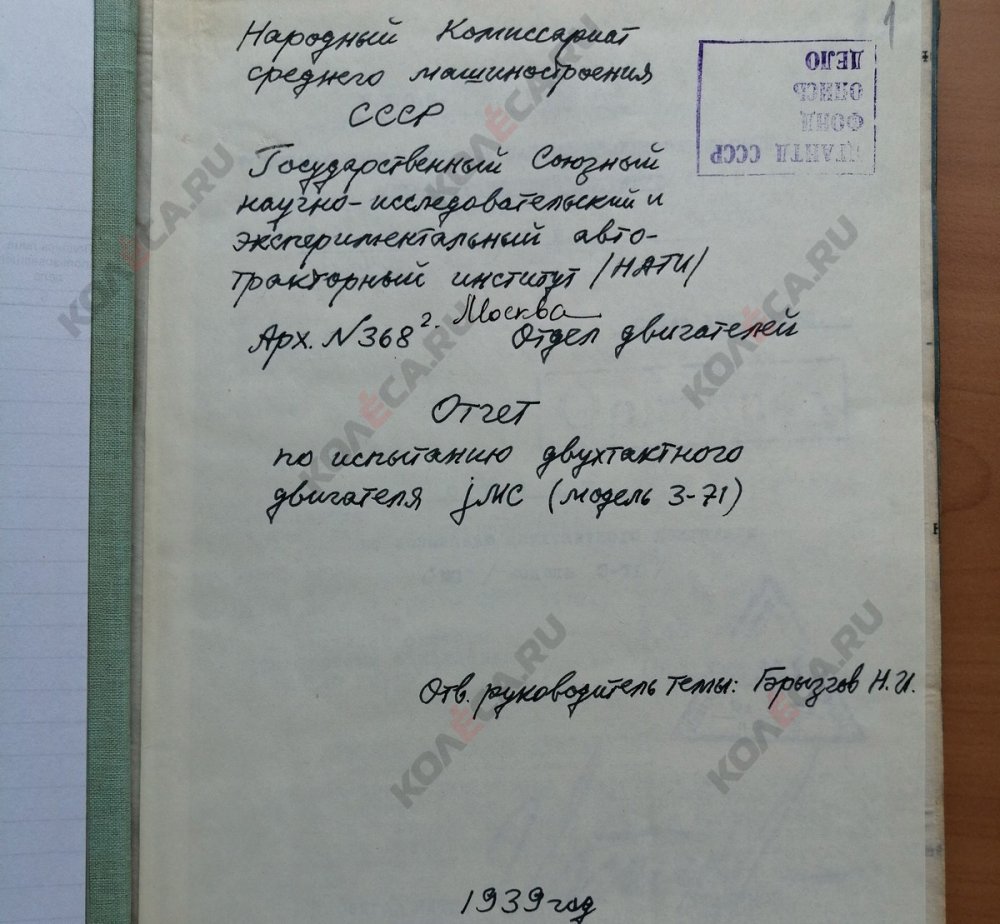 1
Народный Комиссариат
среднего машиностроения
СССР
ЦГАНТД СССР
ФОНД
ОПИСЬ
ДЕЛО
Государственный Союзный
научно-исследовательский и
экспериментальный авто-
тракторный институт /НАТИ/
г. Москва
Арх. №368 Отдел двигателей
Отчет
по испытанию двухтактного
двигателя jМС (модель 3-71)
Отв. руководитель темы: Н.И.
1939 год
КОЛЁСА.RU
КОЛЁСА.RU
КОЛЁСА.RU
КОЛЁСА.RU
КОЛЁСА.RU
КОЛЁСА.RU
КОЛЁСА.RU